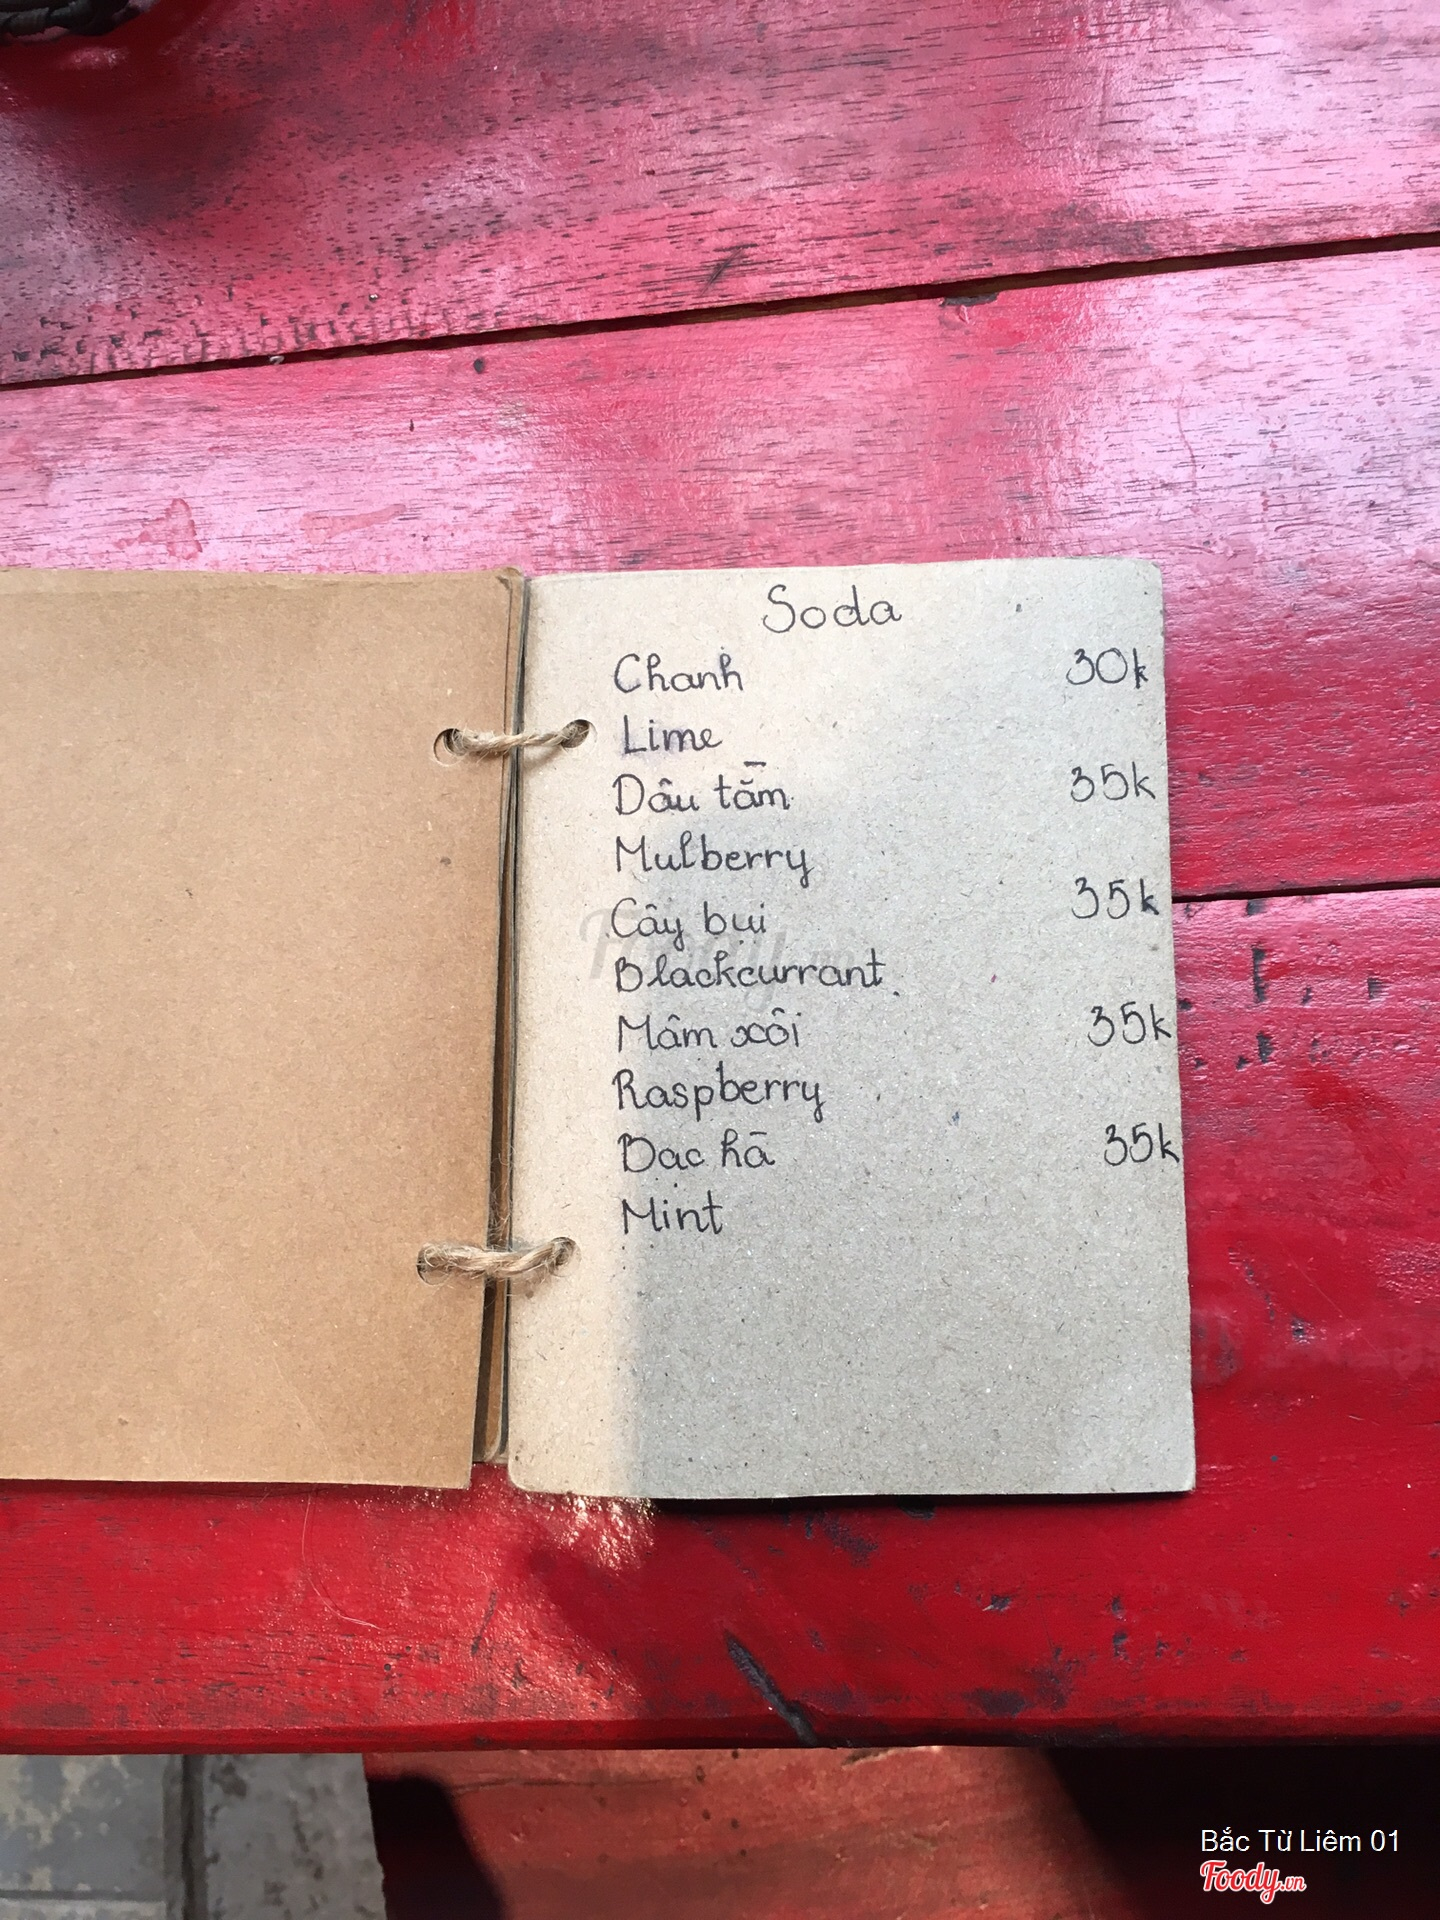 Soda
Chanh 30k
Lime
Dâu tằm 35k
Mulberry
Cây bụi 35k
Blackcurrant
Mâm xôi 35k
Raspberry
Bạc hà 35k
Mint
Foody.vn
Bắc Từ Liêm 01
Foody.vn